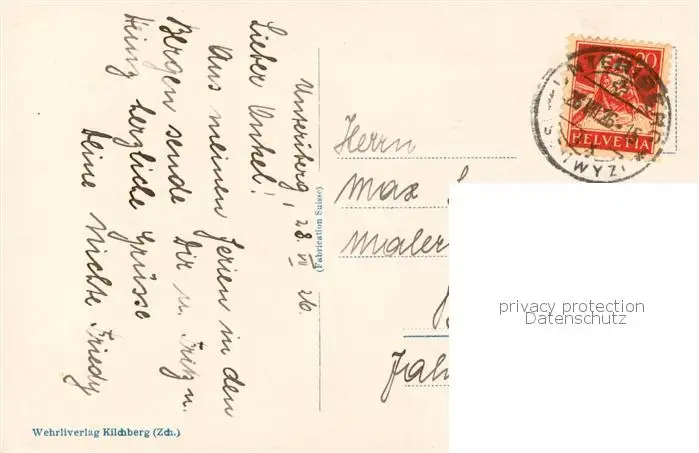 Unteriberg, 28. VII 26.
Lieber Onkel!
Aus meinen Ferien in den
Bergen sende Dir u. Fritz u.
Heinz herzliche Grüsse
Deine Nichte Friedy
(Fabrication Suisse)
Wehrliverlag Kilchberg (Zch.)
20
HELVETIA
UNTERIBERG
(SCHWYZ)
Herrn
Max
Maler
privacy protection
Datenschutz